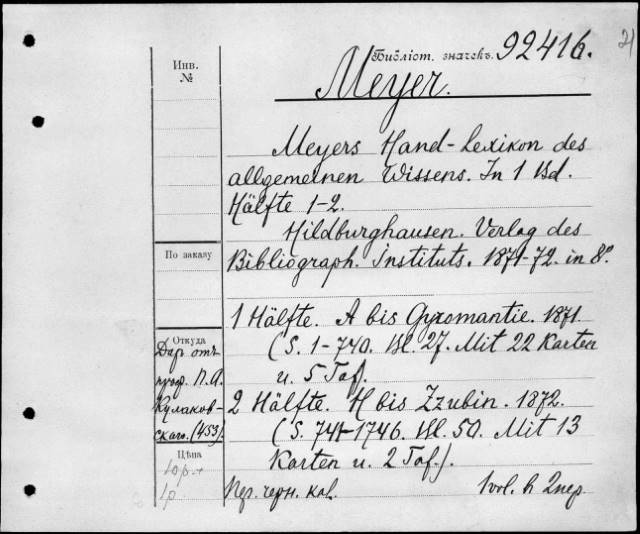 21
Библіот. значекъ. 92416.
Инв.
№
Meyer.
Meyers Hand-Lexikon des
allgemeinen Wissens. In 1 Bd.
Hälfte 1-2.
Hildburghausen. Verlag des
Bibliograph. Instituts. 1871-72. in 8º
По заказу
1 Hälfte. A bis Gyromantie. 1871
(S. 1-740. Bl. 27. Mit 22 Karten
u. 5 Taf.
2 Hälfte. H bis Zzubin. 1872.
(S. 741-1746. Bl. 50. Mit 13
Karten u. 2 Taf.).
Откуда
Даръ отъ
проф. П.А.
Кулаков-
скаго. (453)
Цѣна
10р.
1р
Пер. черн. кол. 1 vol. в 2 пер.